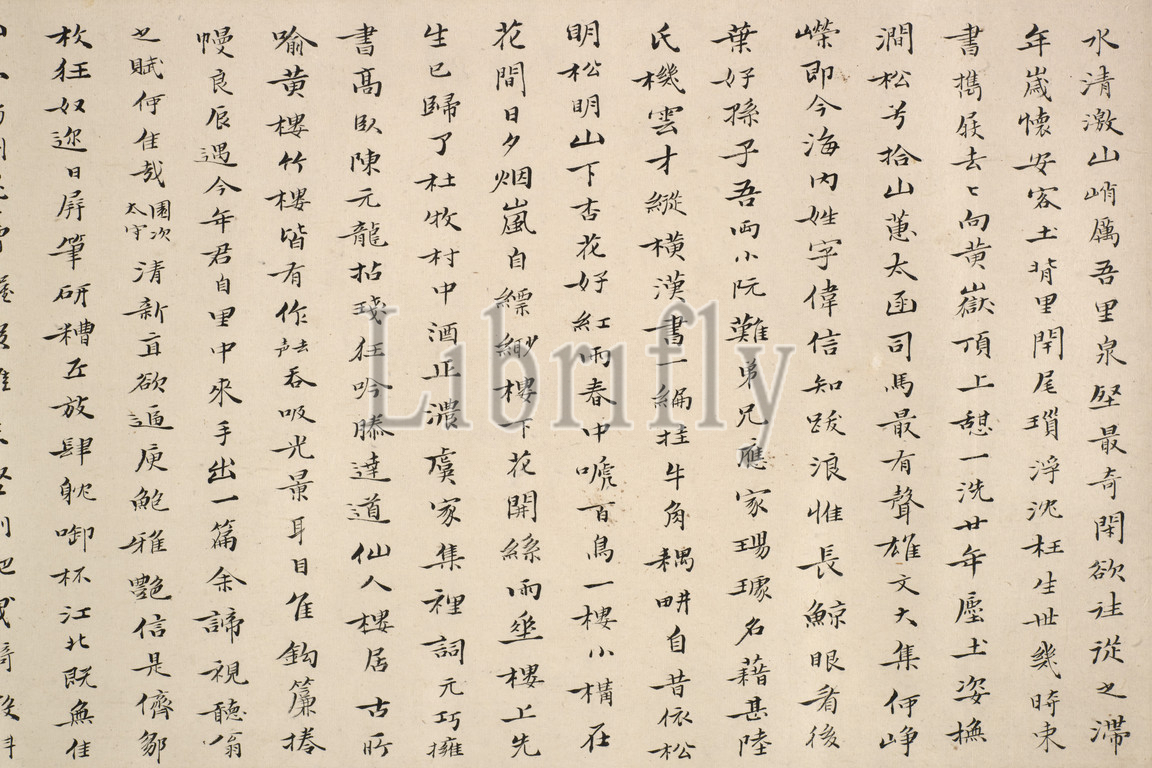 水清激山峭厲吾里泉壑最奇閑欲往從之滯
年歲懷安客土背里閈尾瑣浮沈枉生世幾時束
書擕屐去〻向黃嶽頂上憩一洗廿年塵土姿撫
澗松兮拾山蕙太函司馬最有聲雄文大集何崢
嶸即今海內姓字偉信知跋浪惟長鯨眼看後
葉好孫子吾兩小阮難弟兄應家瑒璩名藉甚陸
氏機雲才縱橫漢書一編挂牛角耦畊自昔依松
明松明山下杏花好紅雨春中嗁百鳥一樓小構在
花間日夕烟嵐自縹緲樓下花開絲雨垂樓上先
生已歸了杜牧村中酒正濃虞家集裡詞元巧擁
書高臥陳元龍拈琖狂吟滕達道仙人樓居古所
喻黃樓竹樓皆有作去聲吞吸光景耳目隹鈎簾捲
幔良辰遇今年君自里中來手出一篇余諦視聽翁
之賦何佳哉園次太守清新直欲逼庾鮑雅艷信是儕鄒
枚狂奴邇日屏筆研糟丘放肆躭啣杯江北既無佳